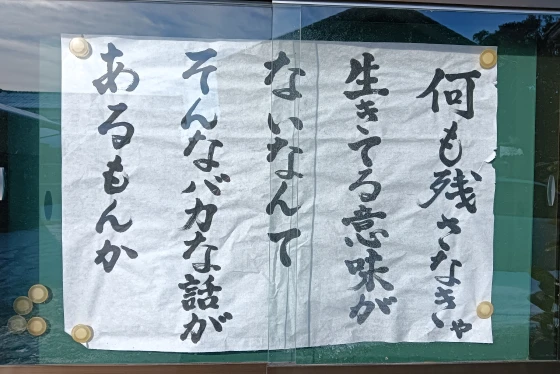 何も残さなきゃ
生きてる意味が
ないなんて
そんなバカな話が
あるもんか